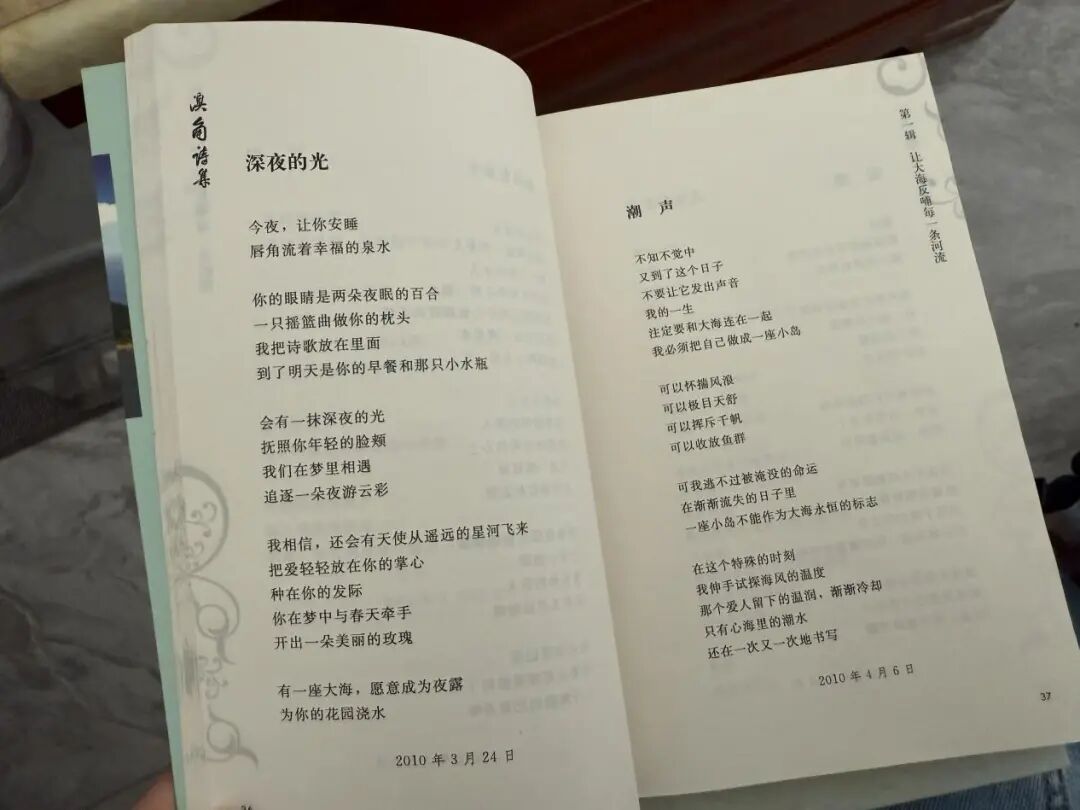 澳角诗集
深夜的光
今夜，让你安睡
唇角流着幸福的泉水
你的眼睛是两朵夜眠的百合
一只摇篮曲做你的枕头
我把诗歌放在里面
到了明天是你的早餐和那只小水瓶
会有一抹深夜的光
抚照你年轻的脸颊
我们在梦里相遇
追逐一朵夜游云彩
我相信，还会有天使从遥远的星河飞来
把爱轻轻放在你的掌心
种在你的发际
你在梦中与春天牵手
开出一朵美丽的玫瑰
有一座大海，愿意成为夜露
为你的花园浇水
2010 年 3 月 24 日
第一辑 让大海反哺每一条河流
潮 声
不知不觉中
又到了这个日子
不要让它发出声音
我的一生
注定要和大海连在一起
我必须把自己做成一座小岛
可以怀揣风浪
可以极目天舒
可以挥斥千帆
可以收放鱼群
可我逃不过被淹没的命运
在渐渐流失的日子里
一座小岛不能作为大海永恒的标志
在这个特殊的时刻
我伸手试探海风的温度
那个爱人留下的温润，渐渐冷却
只有心海里的潮水
还在一次又一次地书写
2010 年 4 月 6 日
37